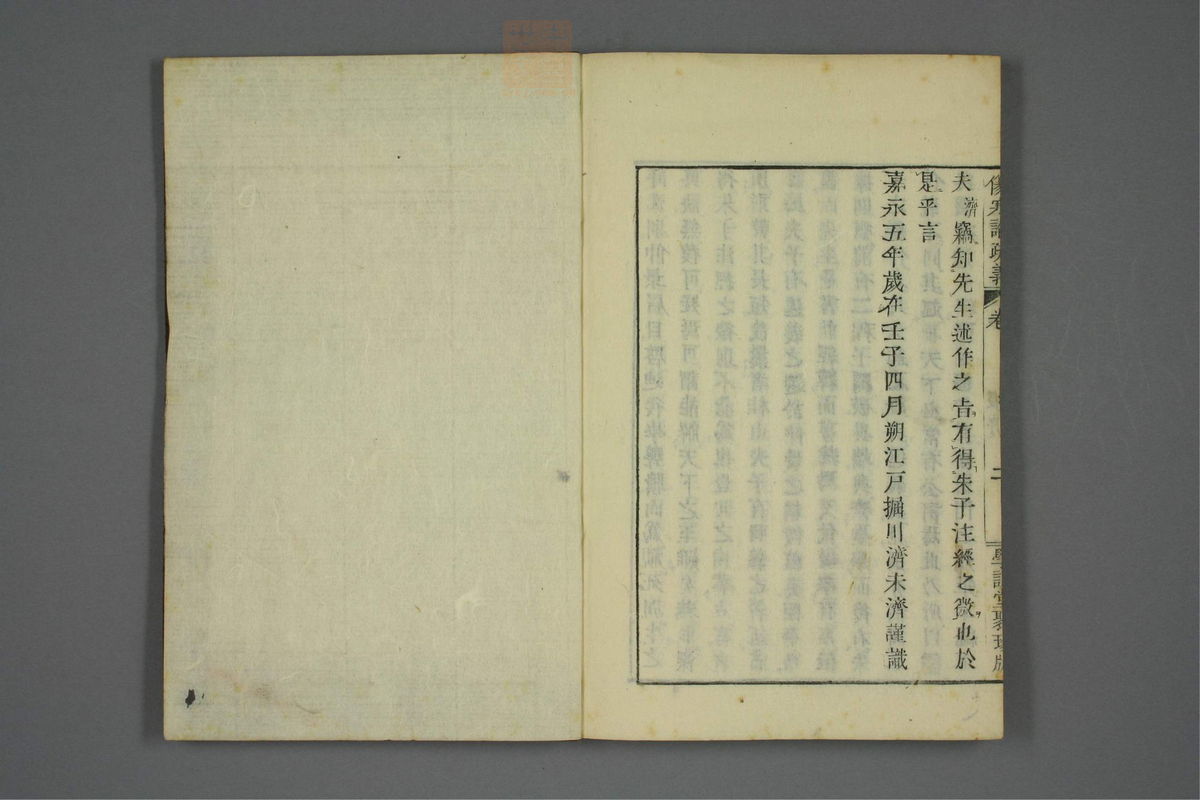 傷寒論疏義 卷 二 學訓堂聚珍版
夫濟竊知先生述作之㫖有得朱子注經之微也於
是乎言
嘉永五年歲在壬子四月朔江戶掘川濟未濟謹識